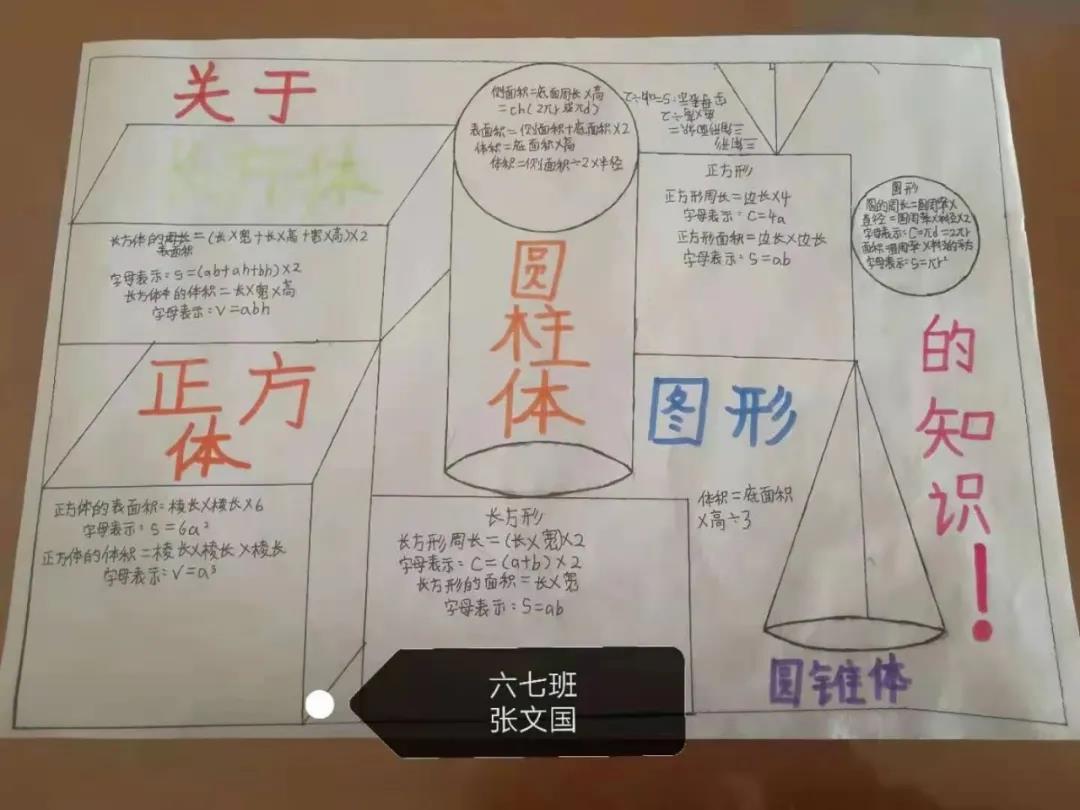 关于
长方体
长方体的周长=(长×宽+长×高+宽×高)×2
表面积
字母表示:S=(ab+ah+bh)×2
长方体的体积=长×宽×高
字母表示:V=abh
正方
体
正方体的表面积=棱长×棱长×6
字母表示:S=6a²
正方体的体积=棱长×棱长×棱长
字母表示:V=a³
侧面积=底面周长×高
=ch(2πr或πd)
表面积=侧面积+底面积×2
体积=底面积×高
体积=侧面积÷2×半径
圆
柱
体
三角形
三角形面积=
底×高÷2
字母表示:S=ah÷2
正方形
正方形周长=边长×4
字母表示:C=4a
正方形面积=边长×边长
字母表示:S=ab
图形
圆的周长=圆周率×
直径=圆周率×半径×2
字母表示:C=πd=2πr
面积=圆周率×半径的平方
字母表示:S=πr²
图形
长方形
长方形周长=(长×宽)×2
字母表示:C=(a+b)×2
长方形的面积=长×宽
字母表示:S=ab
体积=底面积
×高÷3
圆锥体
的
知
识!
六七班
张文国